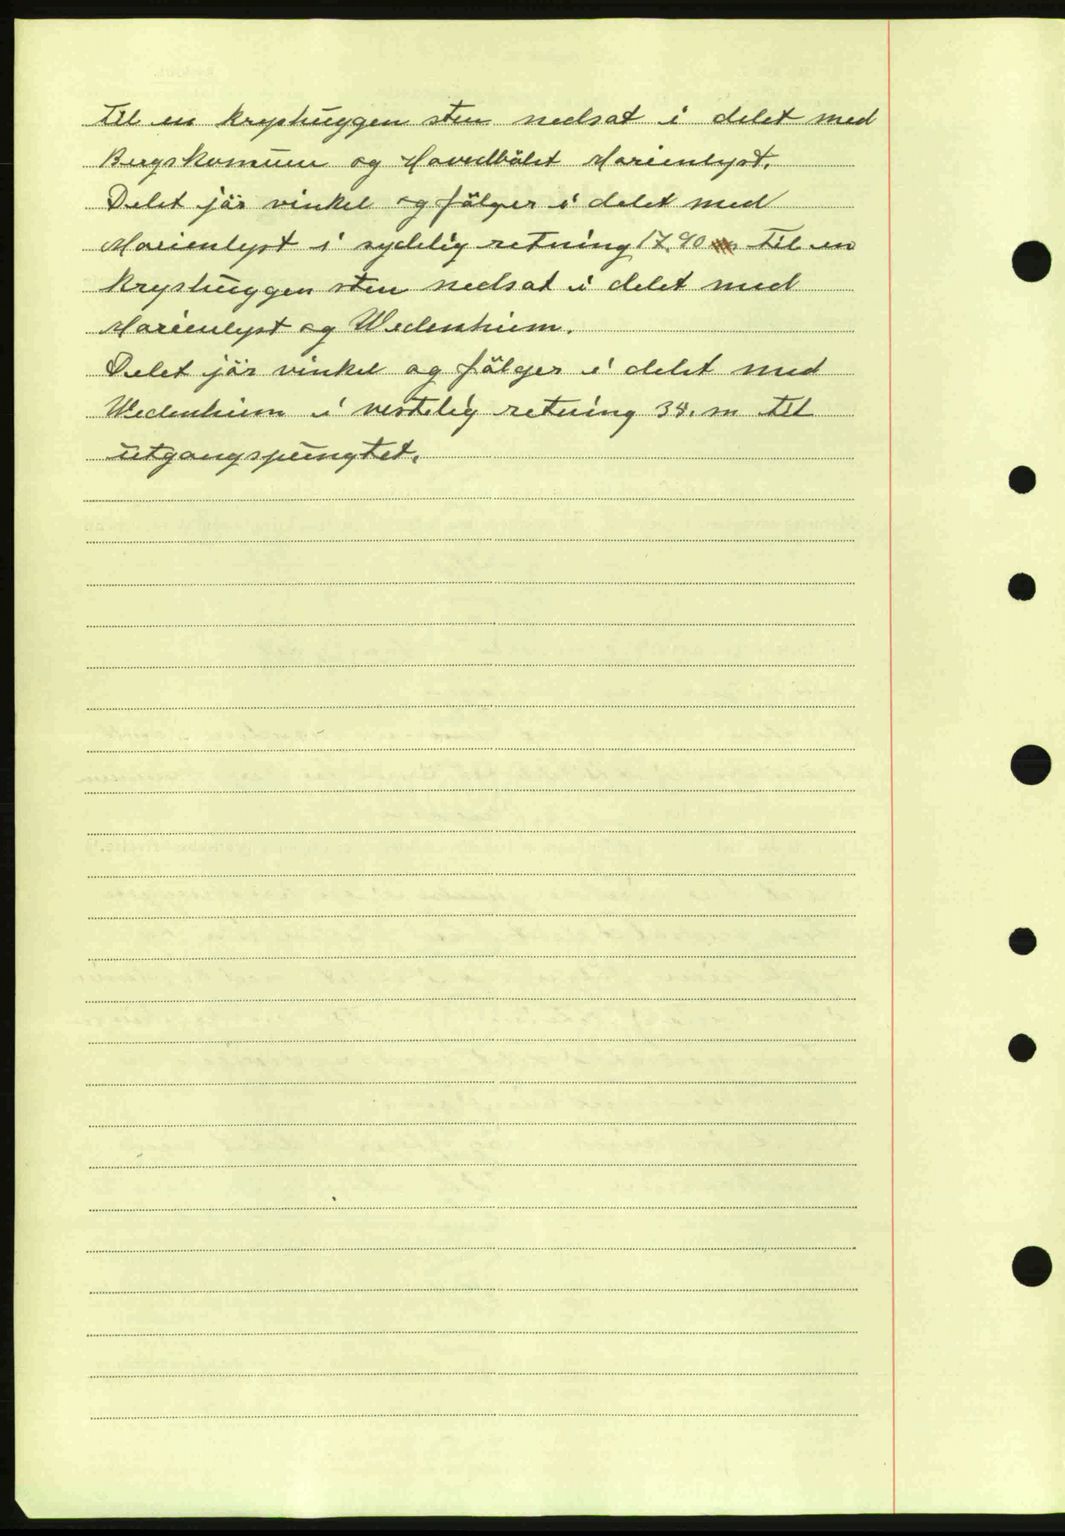 til en kryshuggen sten nedsat i delet med
Bergskomune og Hovedbölet Marienlyst.
Delet jör vinkel og fölger i delet med
Marienlyst i sydelig retning 17,90 m til en
kryshuggen sten nedsat i delet med
Marienlyst og Wedenhiem.
Delet jör vinkel og fölger i delet med
Wedenhiem i vestelig retning 34. m til
utgangspungtet.